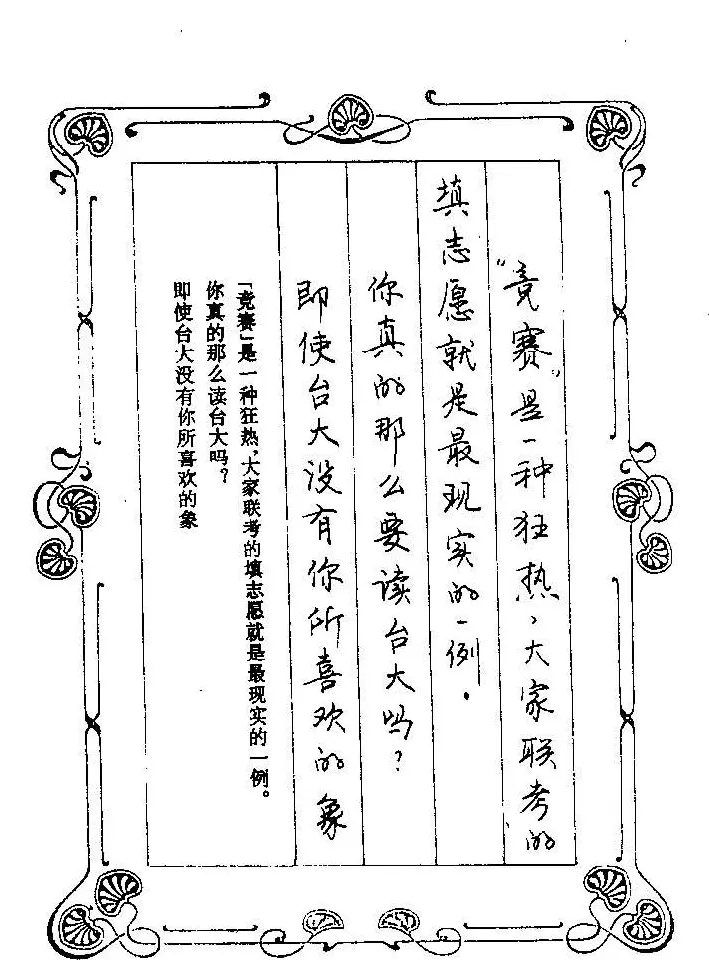 “竞赛”是一种狂热，大家联考的
填志愿就是最现实的一例．
你真的那么要读台大吗？
即使台大没有你所喜欢的象
「竞赛」是一种狂热，大家联考的填志愿就是最现实的一例。
你真的那么读台大吗？
即使台大没有你所喜欢的象